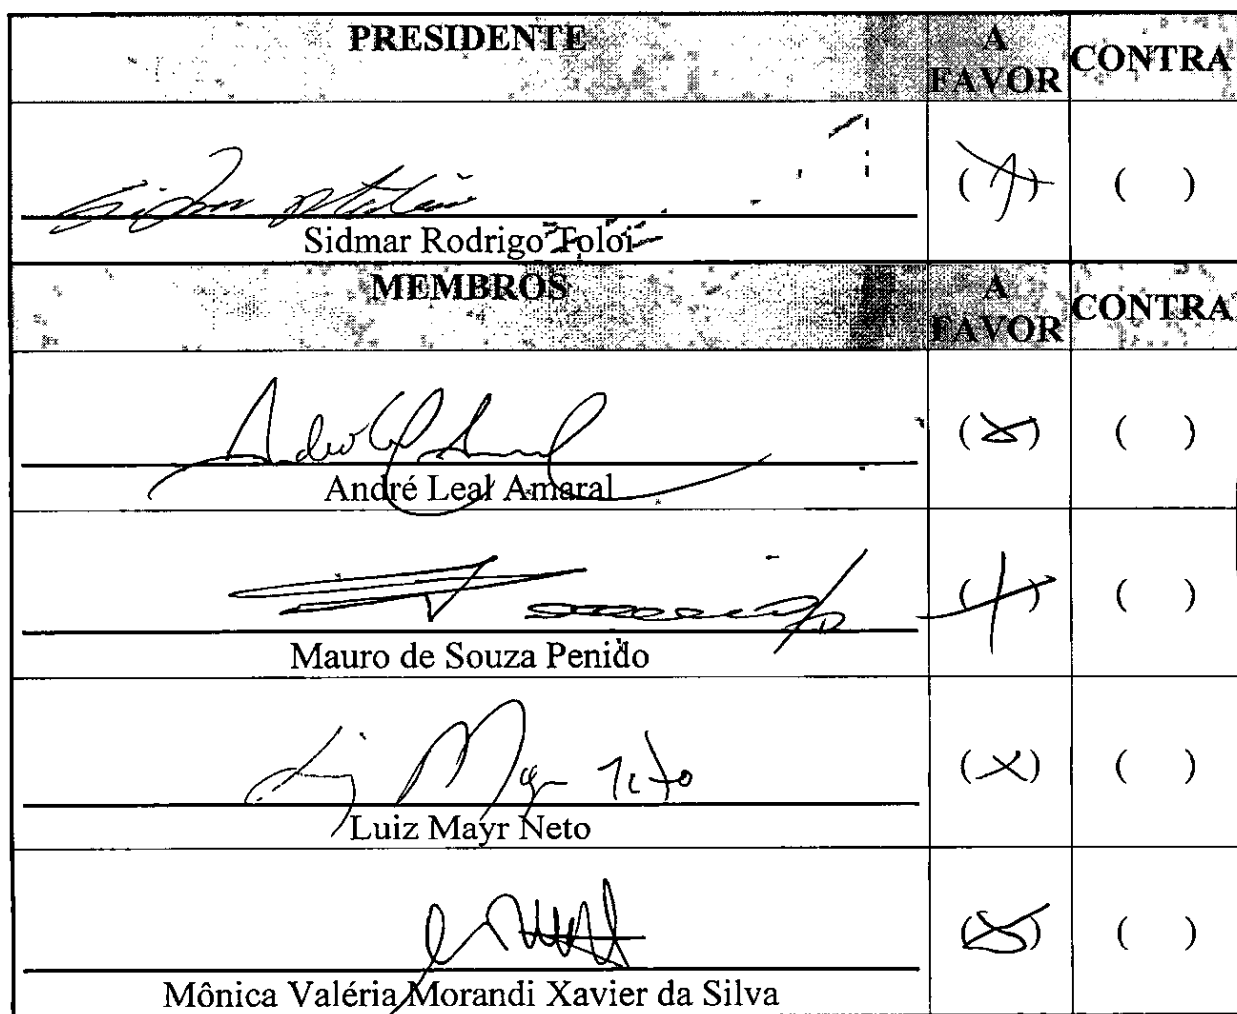 PRESIDENTE A FAVOR CONTRA
( X ) ( )
Sidmar Rodrigo Toloi
MEMBROS A FAVOR CONTRA
( X ) ( )
André Leal Amaral
( X ) ( )
Mauro de Souza Penido
Luiz Mayr Neto ( X ) ( )
Luiz Mayr Neto
( X ) ( )
Mônica Valéria Morandi Xavier da Silva